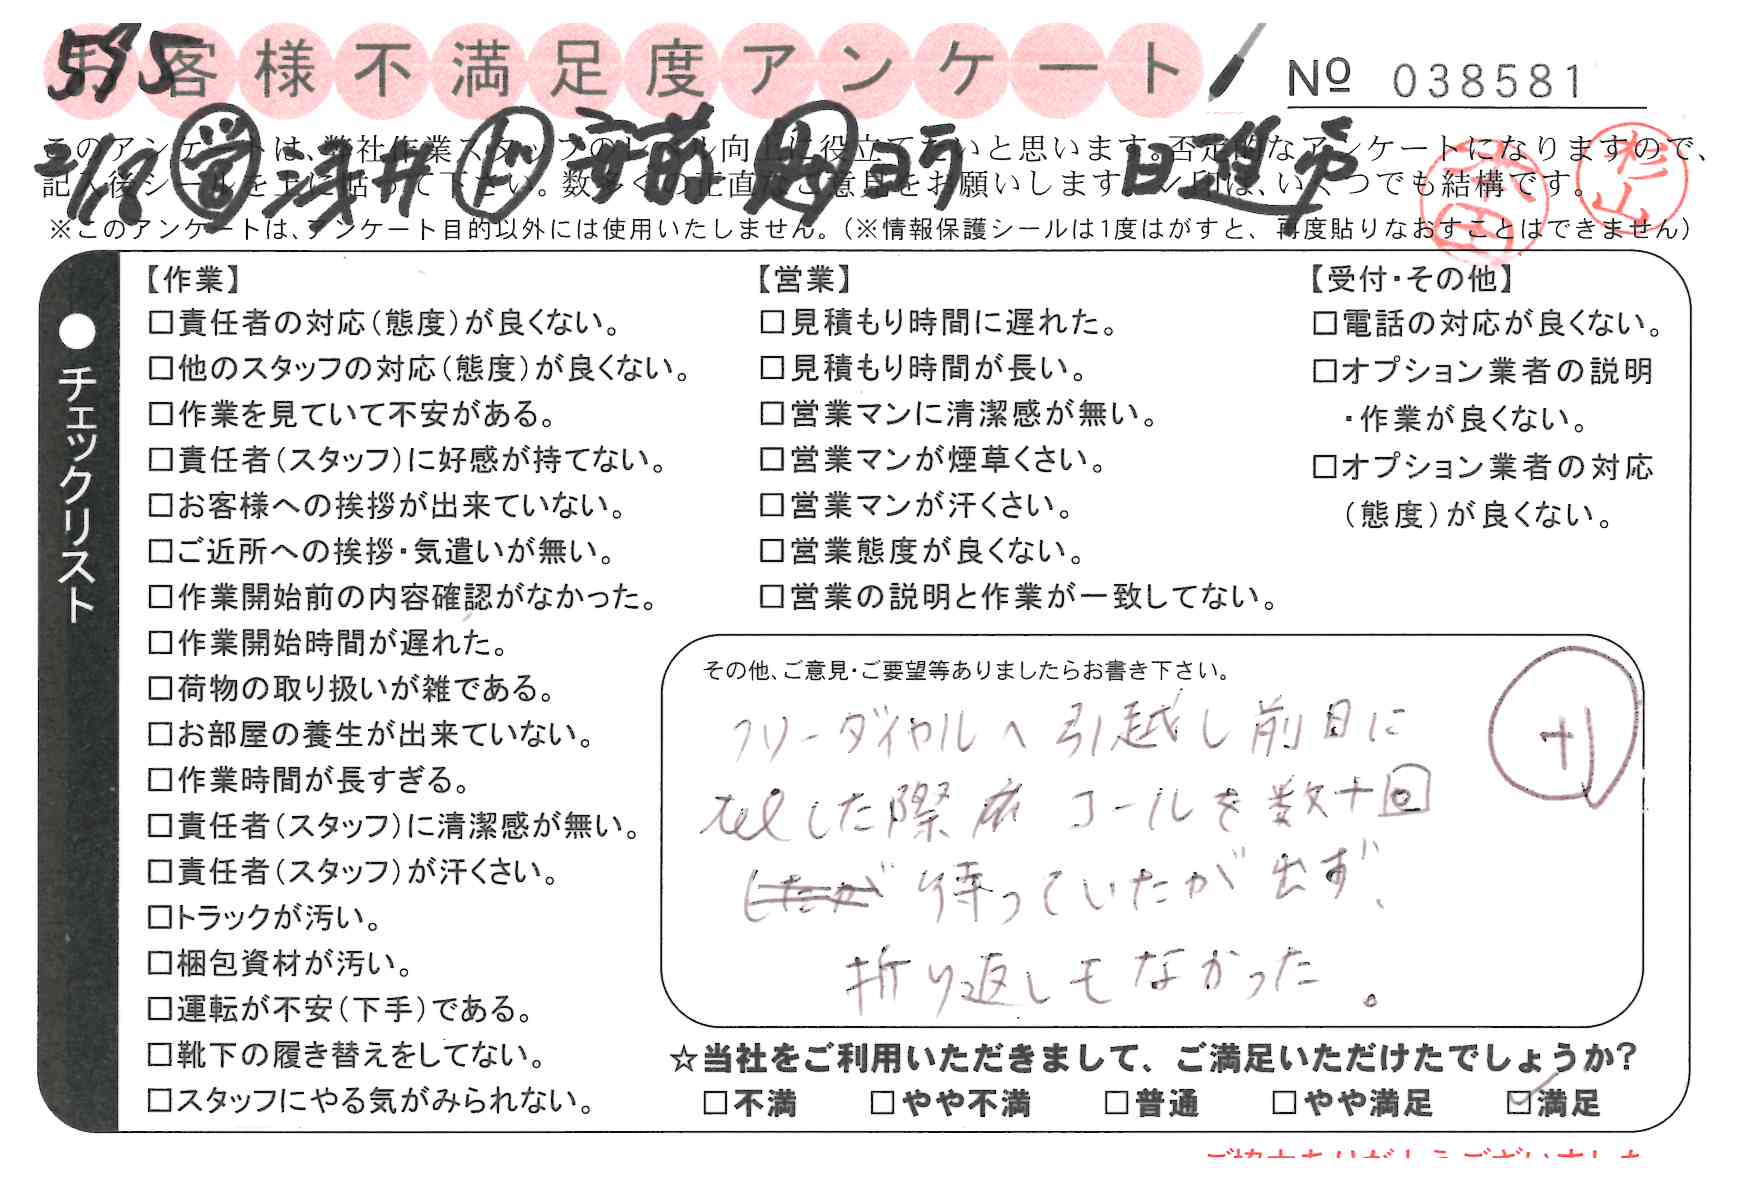 お客様不満足度アンケート
No 038581
595
2/18 営 浅井 ト 安藤 助 コラ 日進市
このアンケートは、弊社作業スタッフのレベル向上に役立てたいと思います。否定的なアンケートになりますので、
記入後シールを上に貼って下さい。数多くの正直なご意見をお願いします。レ印は、いくつでも結構です。
※このアンケートは、アンケート目的以外には使用いたしません。(※情報保護シールは1度はがすと、再度貼りなおすことはできません)
杉山
●チェックリスト
【作業】
□責任者の対応(態度)が良くない。
□他のスタッフの対応(態度)が良くない。
□作業を見ていて不安がある。
□責任者(スタッフ)に好感が持てない。
□お客様への挨拶が出来ていない。
□ご近所への挨拶・気遣いが無い。
□作業開始前の内容確認がなかった。
□作業開始時間が遅れた。
□荷物の取り扱いが雑である。
□お部屋の養生が出来ていない。
□作業時間が長すぎる。
□責任者(スタッフ)に清潔感が無い。
□責任者(スタッフ)が汗くさい。
□トラックが汚い。
□梱包資材が汚い。
□運転が不安(下手)である。
□靴下の履き替えをしてない。
□スタッフにやる気がみられない。
【営業】
□見積もり時間に遅れた。
□見積もり時間が長い。
□営業マンに清潔感が無い。
□営業マンが煙草くさい。
□営業マンが汗くさい。
□営業態度が良くない。
□営業の説明と作業が一致してない。
【受付・その他】
□電話の対応が良くない。
□オプション業者の説明
・作業が良くない。
□オプション業者の対応
(態度)が良くない。
その他、ご意見・ご要望等ありましたらお書き下さい。
フリーダイヤルへ引越し前日に
telした際 コールを数十回
したが 待っていたが出ず、
折り返しもなかった。
☆当社をご利用いただきまして、ご満足いただけたでしょうか?
□不満 □やや不満 □普通 □やや満足 ☑満足
ご協力ありがとうございました